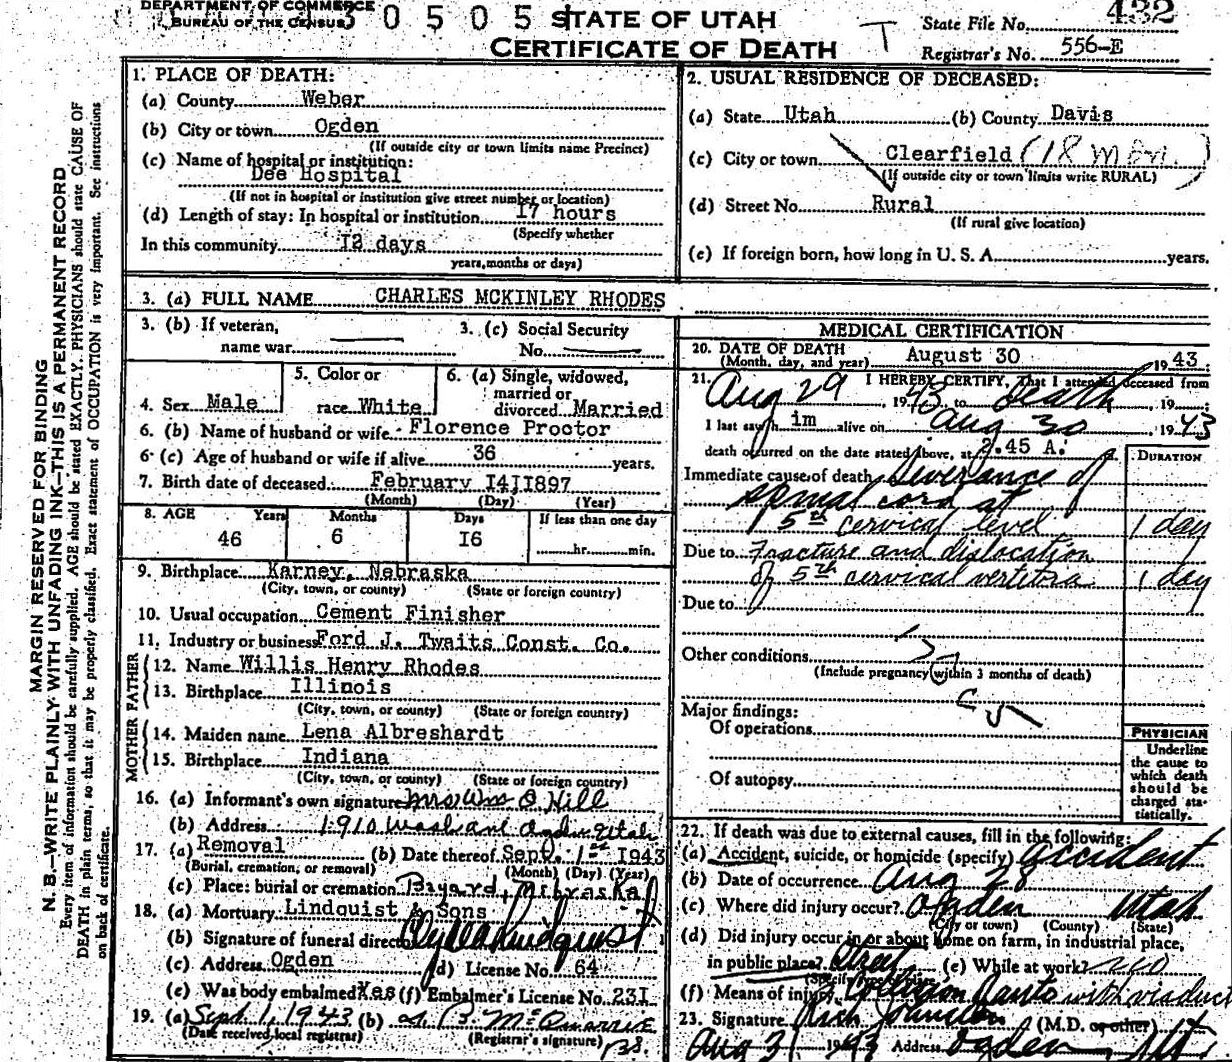 DEPARTMENT OF COMMERCE
BUREAU OF THE CENSUS
0 5 0 5
STATE OF UTAH
CERTIFICATE OF DEATH
T
State File No. 432
Registrar's No. 556-E
MARGIN RESERVED FOR BINDING
N. B.—WRITE PLAINLY WITH UNFADING INK—THIS IS A PERMANENT RECORD
Every item of information should be carefully supplied. AGE should be stated EXACTLY. PHYSICIANS should state CAUSE OF
DEATH in plain terms, so that it may be properly classified. Exact statement of OCCUPATION is very important. See instructions
on back of certificate.
1. PLACE OF DEATH:
(a) County Weber
(b) City or town Ogden
(If outside city or town limits name Precinct)
(c) Name of hospital or institution:
Dee Hospital
(If not in hospital or institution give street number or location)
(d) Length of stay: In hospital or institution 17 hours
(Specify whether
In this community days
years, months or days)
2. USUAL RESIDENCE OF DECEASED:
(a) State Utah (b) County Davis
(c) City or town Clearfield (18 mon.)
(If outside city or town limits write RURAL)
(d) Street No. Rural
(If rural give location)
(e) If foreign born, how long in U. S. A. years.
3. (a) FULL NAME CHARLES MCKINLEY RHODES
3. (b) If veteran,
name war
3. (c) Social Security
No.
4. Sex Male
5. Color or
race White
6. (a) Single, widowed,
married or
divorced Married
6. (b) Name of husband or wife Florence Proctor
6. (c) Age of husband or wife if alive 36 years.
7. Birth date of deceased February I4 I897
(Month) (Day) (Year)
8. AGE Years Months Days If less than one day
46 6 I6 hr. min.
9. Birthplace Karney, Nebraska
(City, town, or county) (State or foreign country)
10. Usual occupation Cement Finisher
11. Industry or business Ford J. Twaits Const. Co.
FATHER
12. Name Willis Henry Rhodes
13. Birthplace Illinois
(City, town, or county) (State or foreign country)
MOTHER
14. Maiden name Lena Albreshardt
15. Birthplace Indiana
(City, town, or county) (State or foreign country)
16. (a) Informant's own signature Mrs Wm O Hill
(b) Address 1910 Wash ave Ogden Utah
17. (a) Removal (b) Date thereof Sept. 1st I943
(Burial, cremation, or removal) (Month) (Day) (Year)
(c) Place: burial or cremation Bayard, Nebraska
18. (a) Mortuary Lindquist & Sons
(b) Signature of funeral director Lindquist
(c) Address Ogden (d) License No. 64
(e) Was body embalmed Yes (f) Embalmer's License No. 23I
19. (a) Sept. 1, 1943 (b)
(Date received local registrar) (Registrar's signature)
MEDICAL CERTIFICATION
20. DATE OF DEATH
(Month, day, and year) August 30 1943
21. I HEREBY CERTIFY, That I attended deceased from
Aug 29, 1943 to death, 19
I last saw him alive on Aug 30 1943
death occurred on the date stated above, at 2.45 A.
DURATION
Immediate cause of death Severance of
spinal cord at
5th cervical level 1 day
Due to Fracture and dislocation
of 5th cervical vertebra 1 day
Due to
Other conditions
(Include pregnancy within 3 months of death)
Major findings:
Of operations
Of autopsy
PHYSICIAN
Underline
the cause to
which death
should be
charged sta-
tistically.
22. If death was due to external causes, fill in the following:
(a) Accident, suicide, or homicide (specify) accident
(b) Date of occurrence Aug 28
(c) Where did injury occur? Ogden Utah
(City or town) (County) (State)
(d) Did injury occur in or about home on farm, in industrial place,
in public place? Street (e) While at work? no
(f) Means of injury Collision auto with viaduct
23. Signature Rich Johnston (M.D. or other)
Aug 31 1943 Address Ogden, Ut